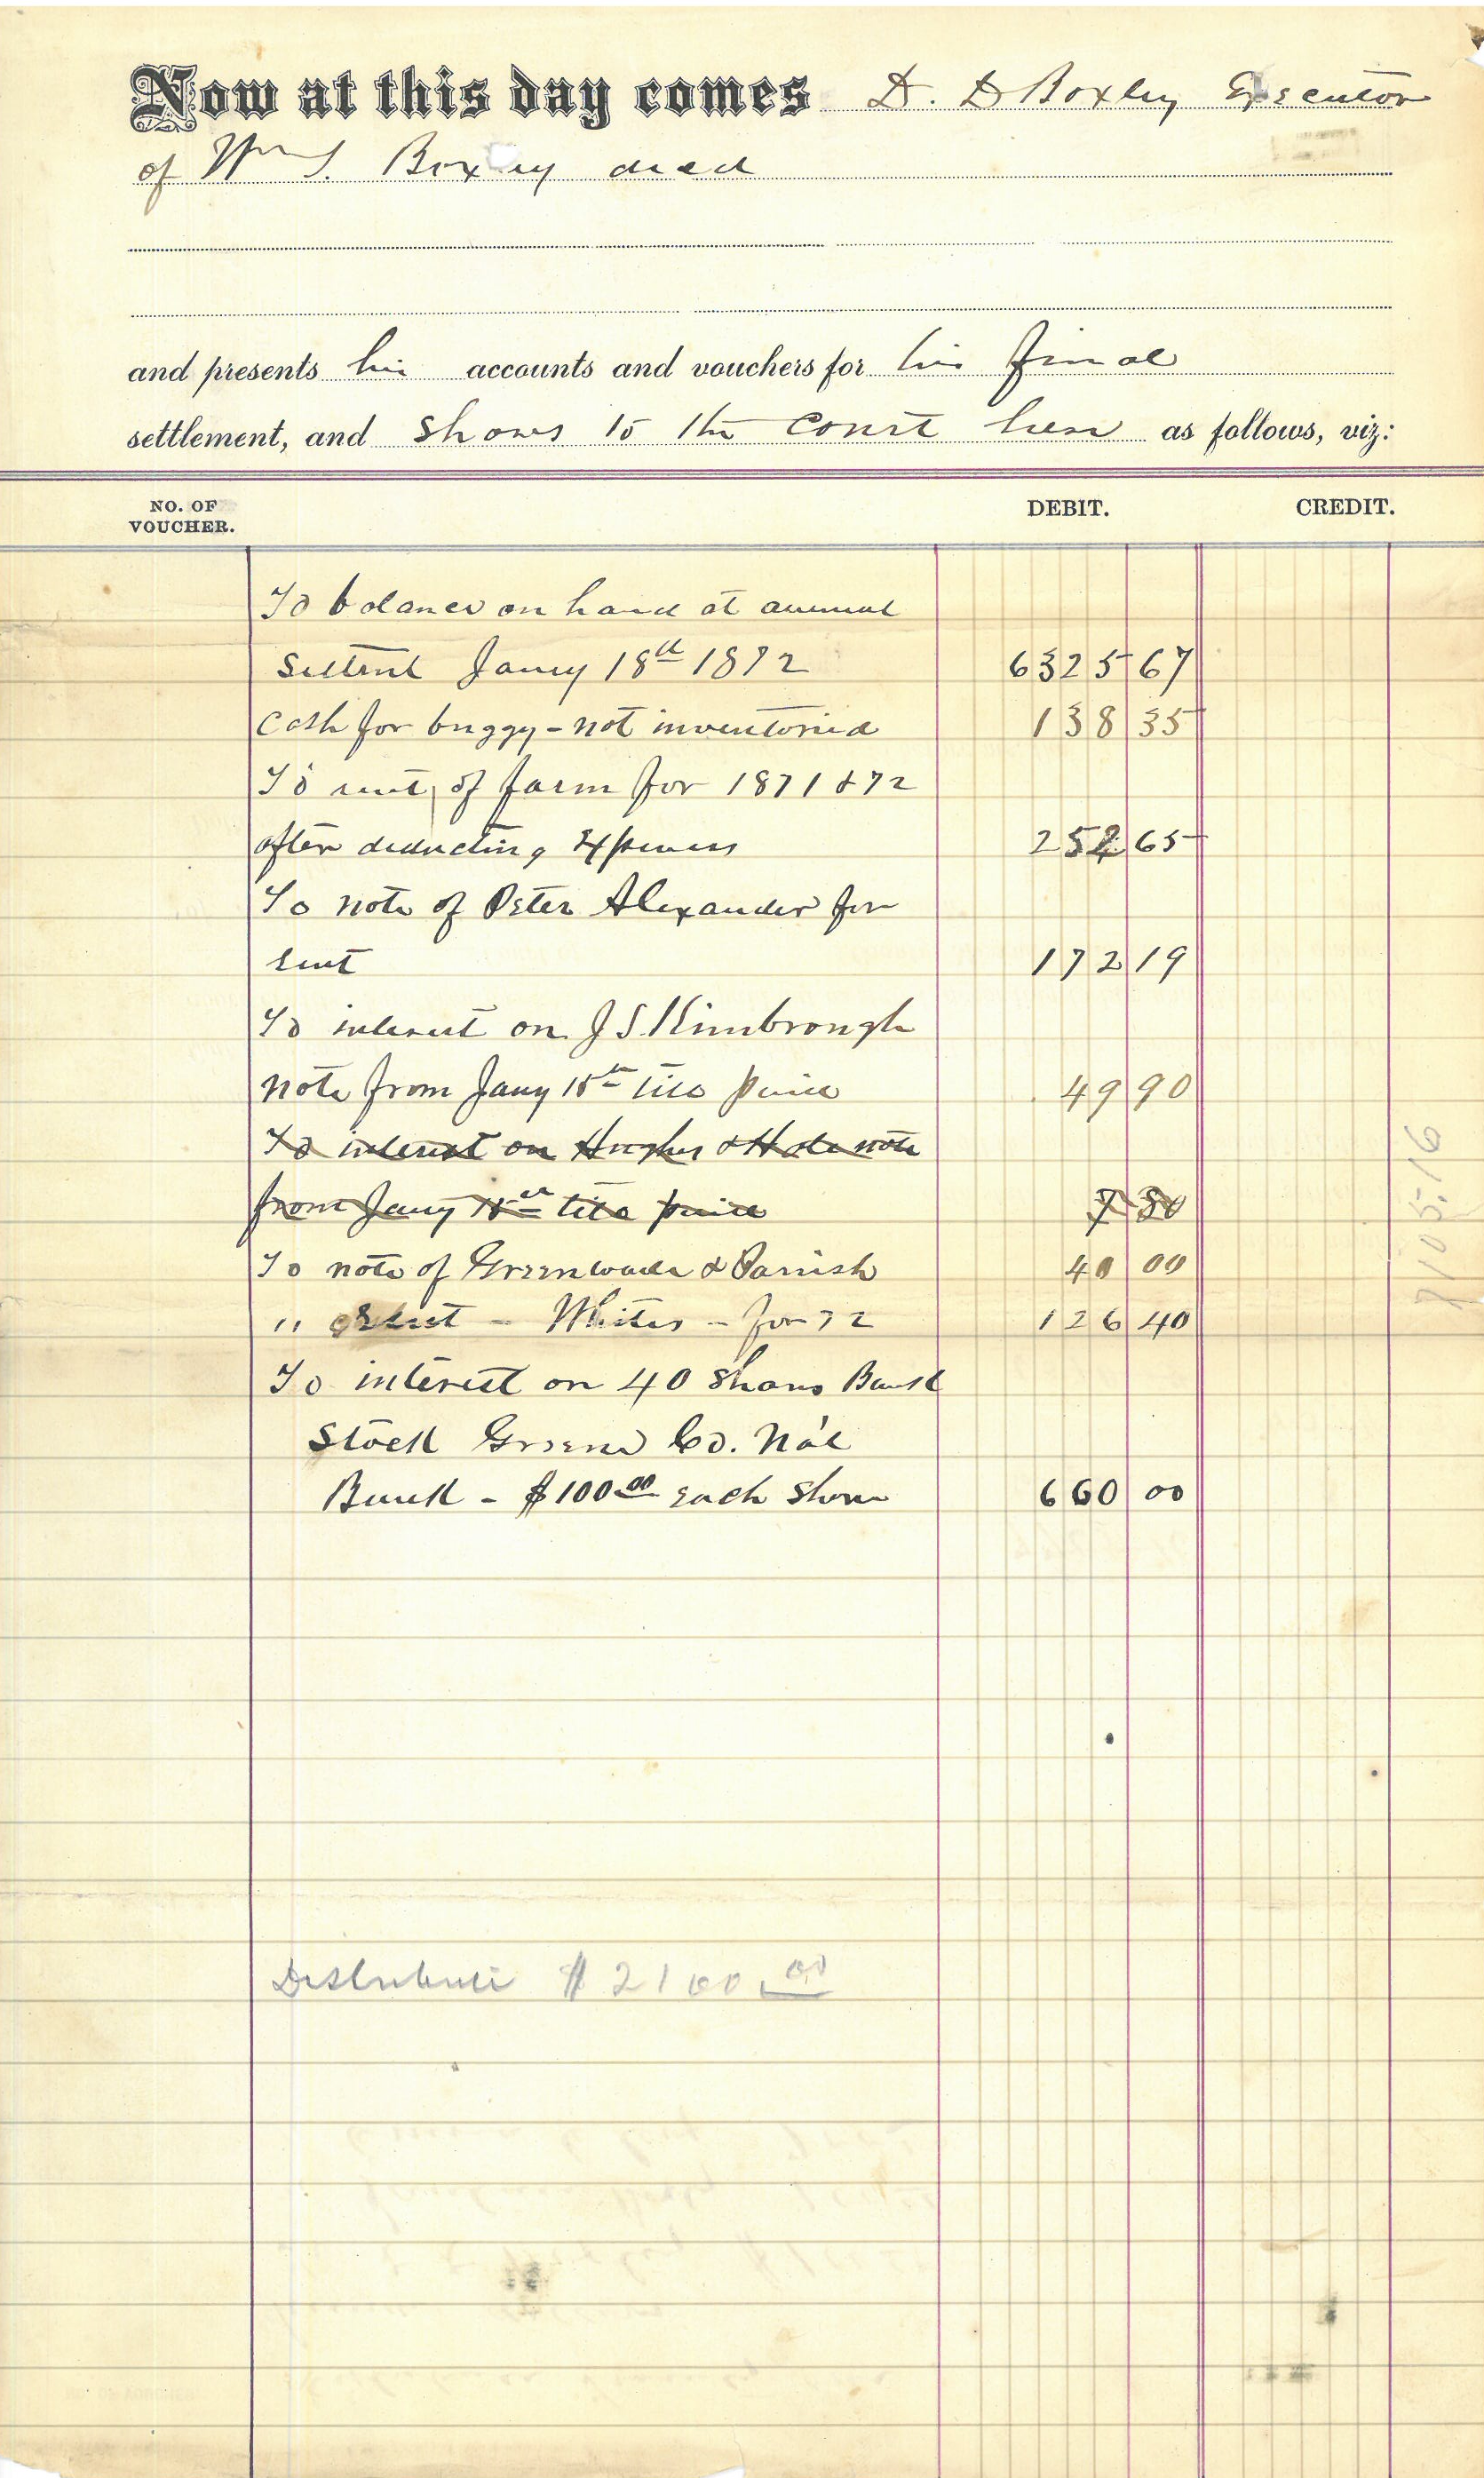 Now at this day comes D. D Boxley Executor
of Wm S. Boxley decd
and presents his accounts and vouchers for his final
settlement, and shows to the Court here as follows, viz:
NO. OF VOUCHER. DEBIT. CREDIT.
To balance on hand at annual
Settmt Jany 18th 1872 6325 67
Cash for buggy - not inventoried 138 35
To rent of farm for 1871 & 72
after deducting Expenses 252 65
To note of Peter Alexander for
rent 172 19
To interest on J S Kimbrough
note from Jany 18th till paid 49 90
To interest on Hughes & Hole note
from Jany 18th till paid 7 80
To note of Greenwade & Parrish 40 00
" Rent - Whites - for 72 126 40
To interest on 40 Shares Bank
Stock Greene Co. Na'l
Bank - $100.00 each Share 660 00
Distribute $2100.00
7105.16